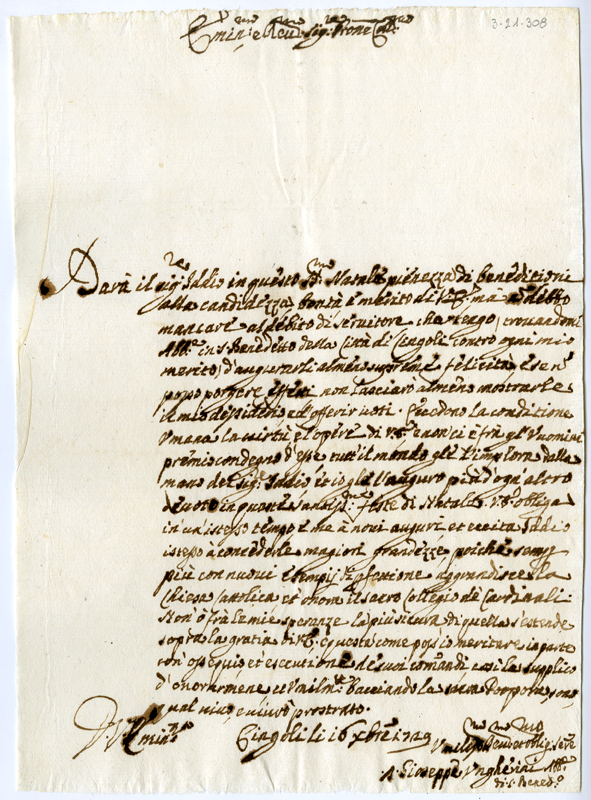 3-21-308
Emin.e Reu.mo Sig.re Prone Col.mo
Darà il Sig.re Iddio in questo S.mo Natale pienezza di benedicioni
alla candidezza bontà e merito di V.E. mà
mancare al debito di seruitore che tengo, trouandomi
Abb.e in S. Benedetto della Città di Cingoli contro ogni mio
merito, d'augurarli almeno supreme felicità, e se n
posso porgere effetti non lasciarò almeno mostrarle
il mio desiderio ed offerir uoti. Eccedono la conditione
Vmana la uirtù e l'opere di V.E. e non ci è frà gl'Vomini
premio condegno d'esse tutt'il mondo gle l'implora dalla
mano del Sig.re Iddio, et io gle l'auguro più d'ogn'altro
deuoto in queste feste di Natale. V.E. obliga
in un istesso tempo e me à noui auguri et eccita Iddio
istesso à concederle magiori grandezze poiche semp
più con nuoui esempij di pfettione aggrandisce la
Chiesa Cattolica et onora il sacro Collegio de Cardinali
Non ò frà le mie speranze la più sicura di quella s'estende
sopra la gratia di V.E. e questa come possio meritare in parte
con ossequio et essecutione de suoi comandi così la supplico
d'onorarmene et Vmilm.te bacciando la sacra Porpora, sono
qual uiuo, e uiuerò prostrato.
Di V. Emin.za
Cingoli li 16 Xbre 1729
Vmiliss.mo Deuot.mo Oblig.mo Sere
D. Gioseppe Vngherini Abb.e
di S. Bened.o